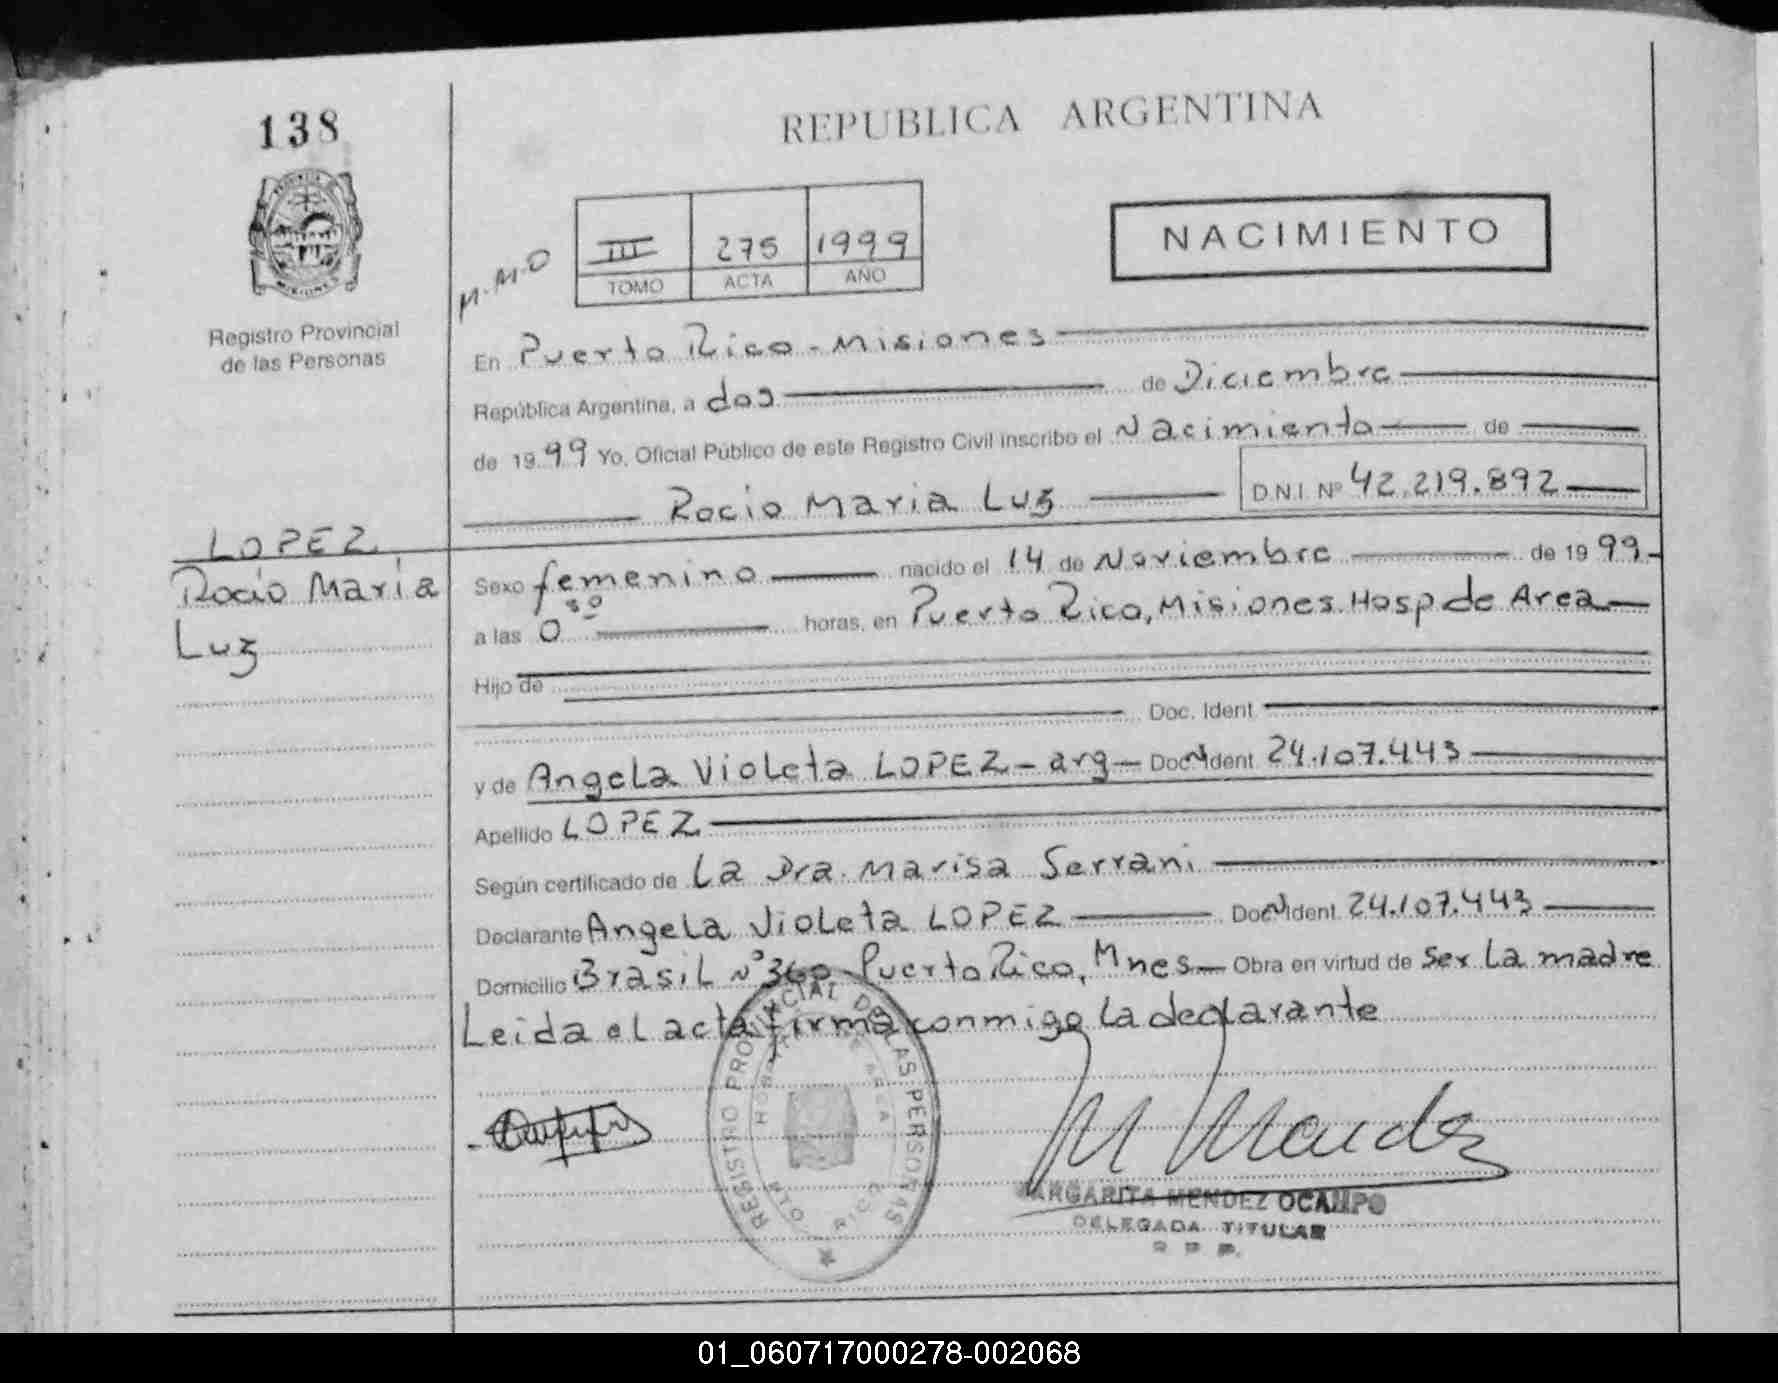 138
REPUBLICA ARGENTINA
NACIMIENTO
III 275 1999
TOMO ACTA AÑO
M.M.O
Registro Provincial
de las Personas
En Puerto Rico - Misiones
República Argentina, a dos de Diciembre
de 1999 Yo, Oficial Público de este Registro Civil inscribo el Nacimiento de
Rocio Maria Luz D.N.I. Nº 42.219.892
LOPEZ
Rocio Maria
Luz
Sexo femenino nacido el 14 de Noviembre de 1999
a las 0 30 horas, en Puerto Rico, Misiones Hosp de Area
Hijo de
Doc. Ident.
y de Angela Violeta LOPEZ - arg - Doc N Ident. 24.107.443
Apellido LOPEZ
Según certificado de La Dra. Marisa Serrani
Declarante Angela Violeta LOPEZ Doc N Ident. 24.107.443
Domicilio Brasil Nº 360 Puerto Rico, Mnes - Obra en virtud de Ser La madre
Leida el acta firma conmigo la declarante
REGISTRO PROVINCIAL DE LAS PERSONAS
AREA
PTO RICO
M Mendez
MARGARITA MENDEZ OCAMPO
DELEGADA TITULAR
01_060717000278-002068